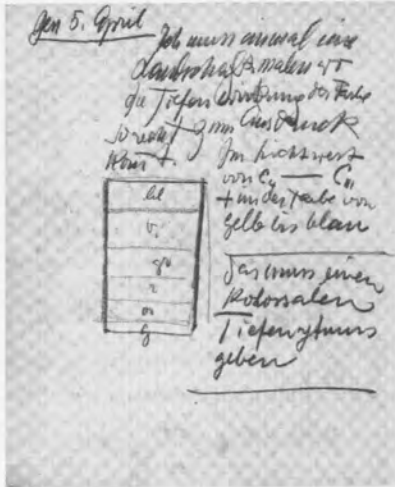 den 5. April
Ich muss einmal eine
Landschaft malen wo
die Tiefenwirkung der Farbe
so recht zum Ausdruck
kommt.
Im Lichtwert
von C4 — C11
+ in der Farbe von
gelb bis blau
bl
v.
gr
r
or
g
Das muss einen
kolossalen
Tiefenrytmus
geben